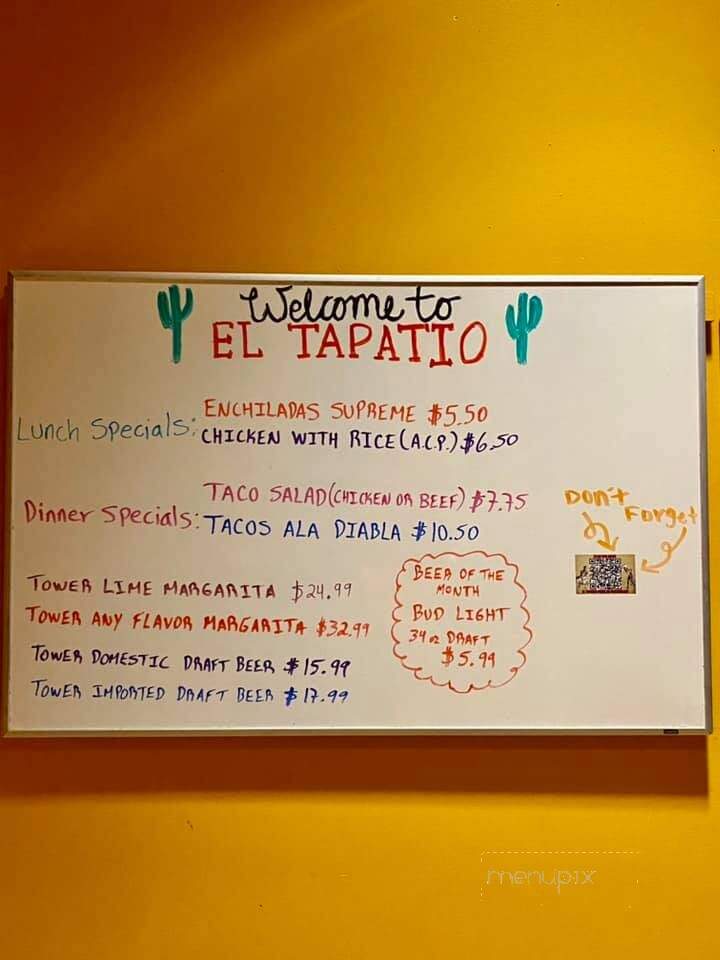 Welcome to
EL TAPATIO
Lunch Specials:
ENCHILADAS SUPREME $5.50
CHICKEN WITH RICE (A.C.P.) $6.50
Dinner Specials:
TACO SALAD (CHICKEN OR BEEF) $7.75
TACOS ALA DIABLA $10.50
Don't
Forget
TOWER LIME MARGARITA $24.99
TOWER ANY FLAVOR MARGARITA $32.99
TOWER DOMESTIC DRAFT BEER $15.99
TOWER IMPORTED DRAFT BEER $17.99
BEER OF THE
MONTH
BUD LIGHT
34 oz DRAFT
$5.99
menupix